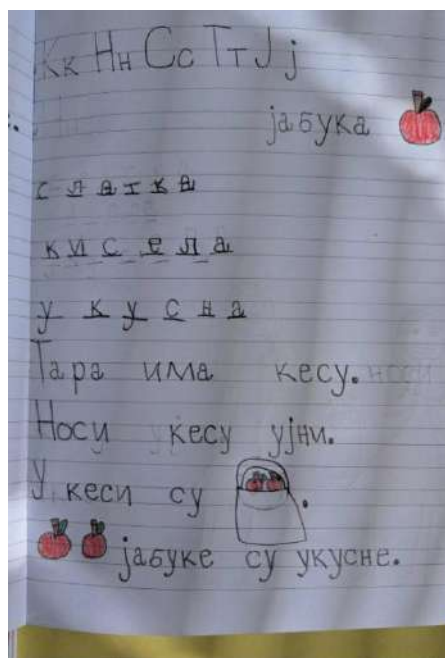 Кк Нн Сс Тт Јј
јабука
слатка
кисела
укусна
Тара има кесу.
Носи кесу ујни.
У кеси су .
јабуке су укусне.